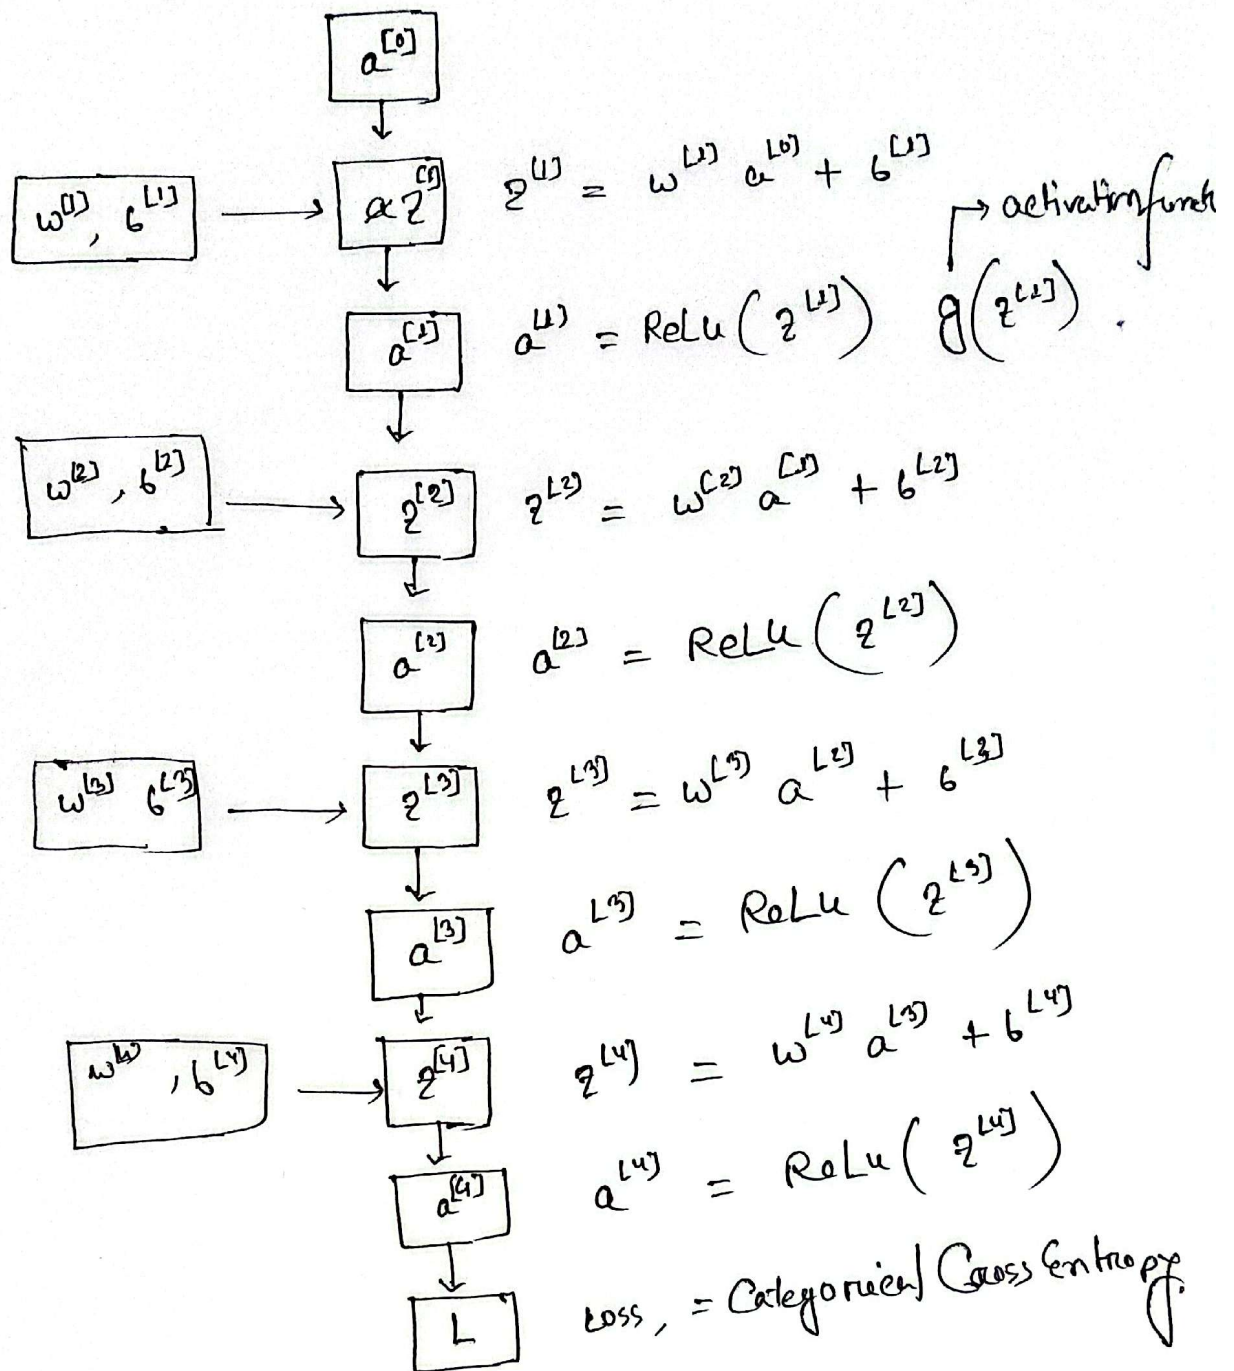 a^[0]
z^[1] = w^[1] a^[0] + b^[1]
→ activation
w^[1], b^[1]
z^[1]
a^[1]
a^[1] = ReLu ( z^[1] ) g ( z^[1] ) .
w^[2], b^[2]
z^[2]
z^[2] = w^[2] a^[1] + b^[2]
a^[2]
a^[2] = ReLu ( z^[2] )
w^[3] b^[3]
z^[3]
z^[3] = w^[3] a^[2] + b^[3]
a^[3]
a^[3] = ReLu ( z^[3] )
w^[4], b^[4]
z^[4]
z^[4] = w^[4] a^[3] + b^[4]
a^[4]
a^[4] = ReLu ( z^[4] )
L
Loss, = Categorical Cross Entropy.